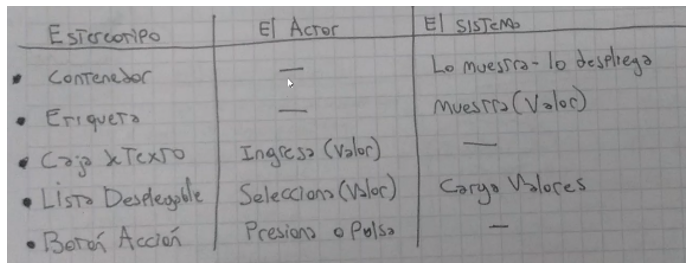 Estereotipo El Actor El sistema
• Contenedor — Lo muestra - lo despliega
• Etiqueta — muestra (Valor)
• Caja x Texto Ingresa (Valor) —
• Lista Desplegable Selecciona (Valor) Carga Valores
• Botón Acción Presiona o Pulsa —